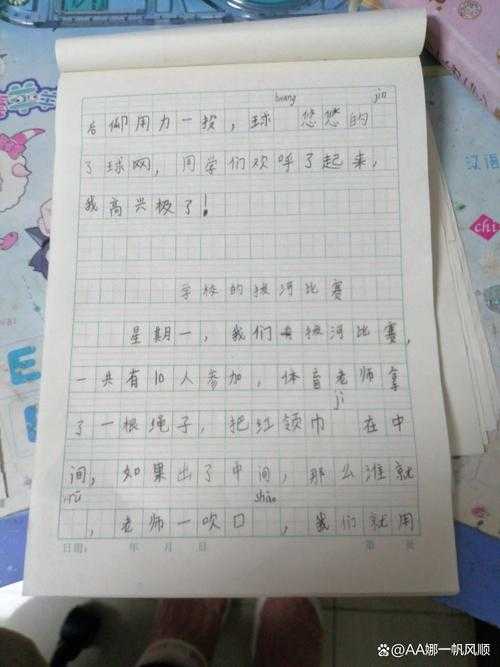 huang jìn
后仰用力一投，球 悠悠的
了球网，同学们欢呼了起来，
我高兴极了！
学校的拔河比赛
星期一，我们拔河比赛，
一共有10人参加，体育老师拿
jì
了一根绳子，把红领巾 在中
间，如果出了中间，那么谁就
shū shào
，老师一吹口 ，我们就用
日期： 年 月 日 第 页
汉语
chi
@AA娜一帆风顺